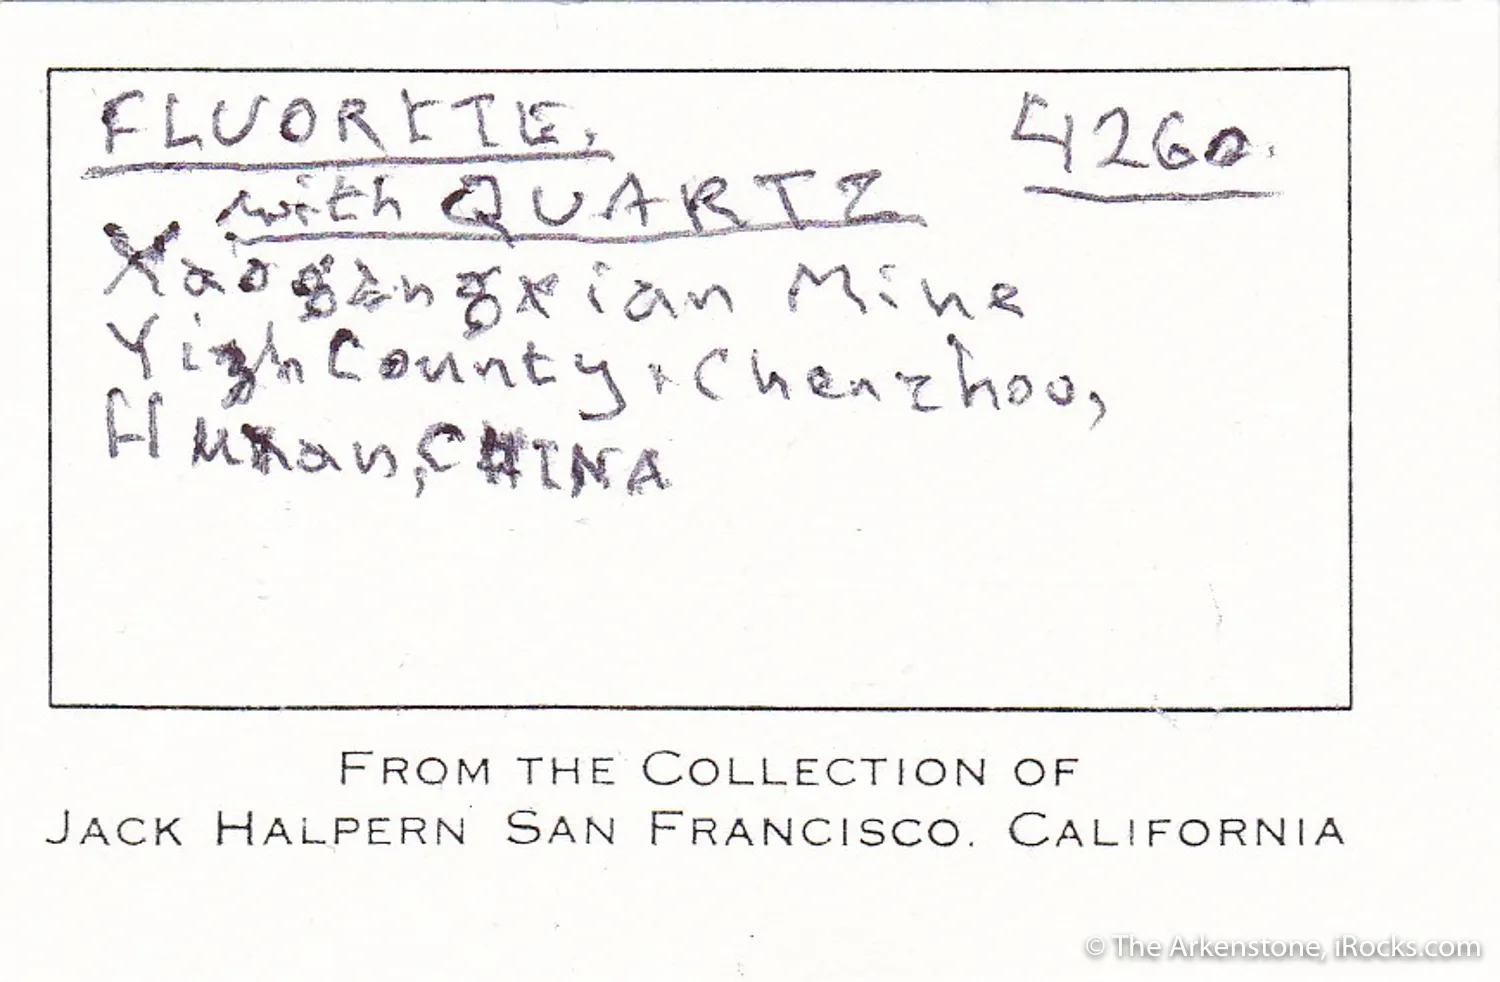 FLUORITE, 4260.
with QUARTZ
Xaogangxian Mine
Yizh County, Chenzhou,
Hunan, CHINA
FROM THE COLLECTION OF
JACK HALPERN SAN FRANCISCO. CALIFORNIA
© The Arkenstone, iRocks.com